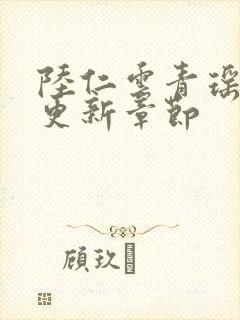 陸仁雲青瑤
更新章節
顾玖